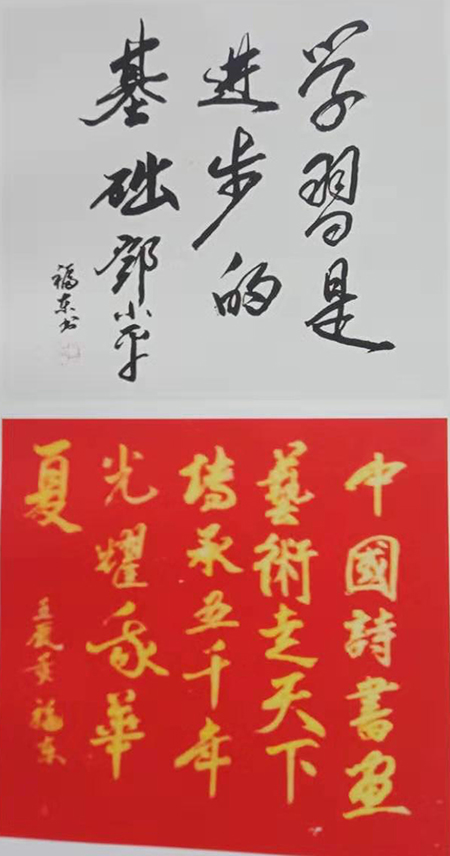 学習是
進步的
基础鄧小平
福东书
中國詩書畫
藝術走天下
傳承五千年
光耀我華
夏
壬辰黄福东